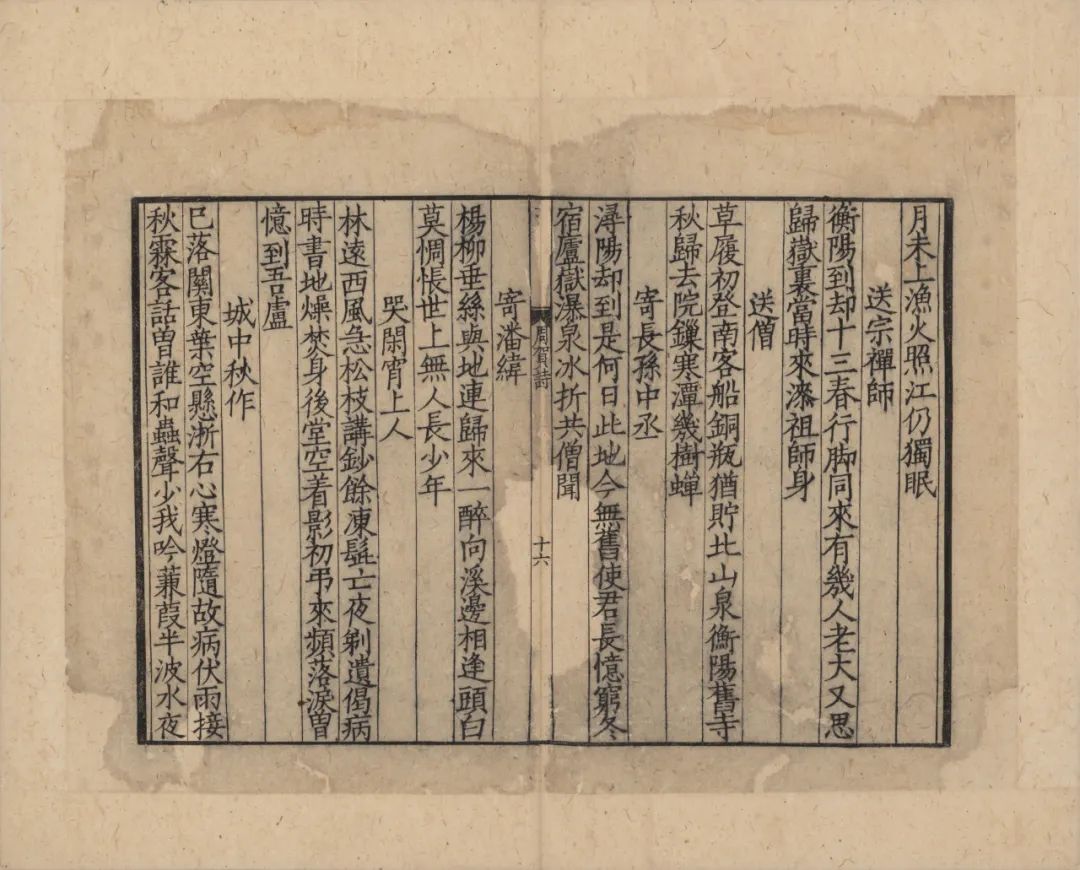 月未上漁火照江仍獨眠
送宗禪師
衡陽到却十三春行脚同來有幾人老大又思
歸嶽裏當時來漆祖師身
送僧
草履初登南客船銅瓶猶貯北山泉衡陽舊寺
秋歸去院鏁寒潭幾樹蟬
寄長孫中丞
潯陽却到是何日此地今無舊使君長憶窮冬
宿廬嶽瀑泉冰折共僧聞
周賀詩
十六
寄潘緯
楊柳垂絲與地連歸來一醉向溪邊相逢頭白
莫惆悵世上無人長少年
哭閑宵上人
林遠西風急松枝講鈔餘凍髭亡夜剃遺偈病
時書地燥焚身後堂空着影初弔來頻落淚曽
憶到吾盧
城中秋作
已落關東葉空懸浙右心寒燈隨故病伏雨接
秋霖客話曽誰和蟲聲少我吟蒹葭半波水夜